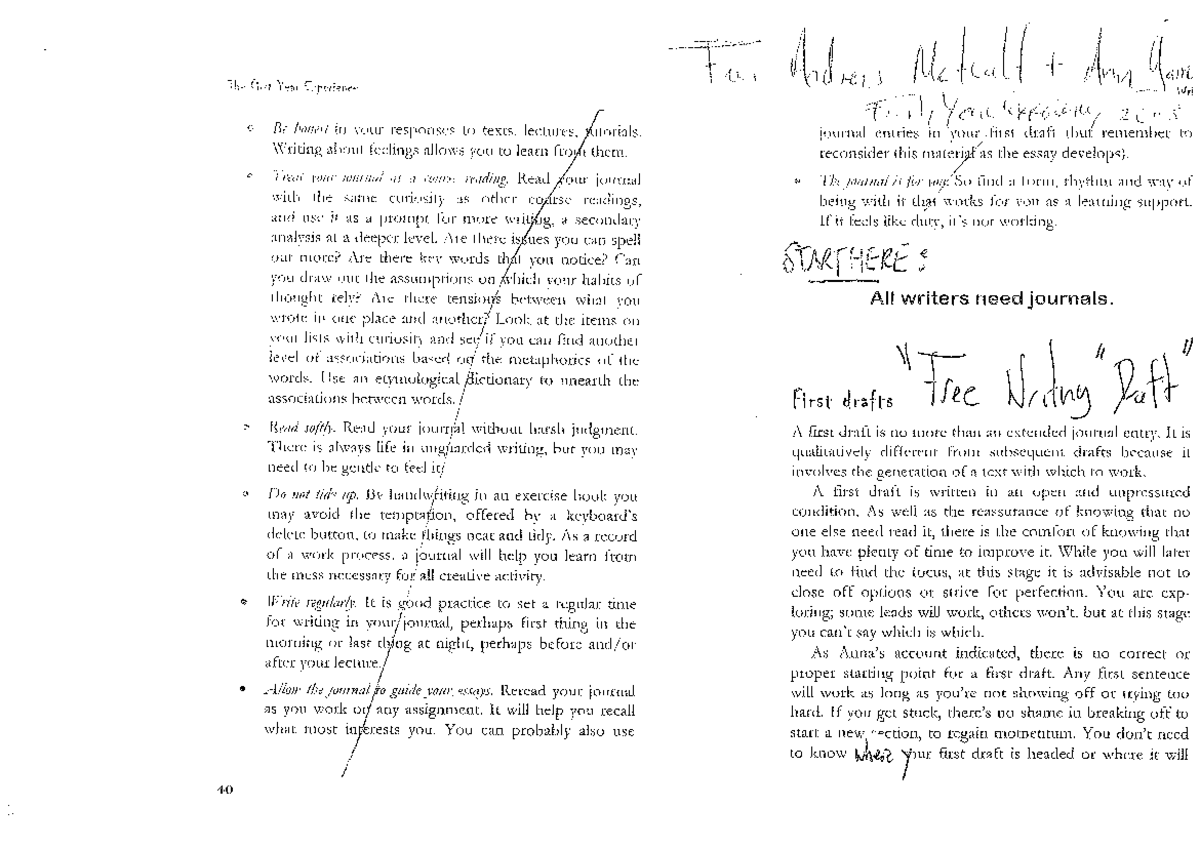 The First Year Experience
Be honest in your responses to texts, lectures, tutorials.
Writing about feelings allows you to learn from them.
Treat your journal as a course reading. Read your journal
with the same curiosity as other course readings,
and use it as a prompt for more writing, a secondary
analysis at a deeper level. Are there issues you can spell
out more? Are there key words that you notice? Can
you draw out the assumptions on which your habits of
thought rely? Are there tensions between what you
wrote in one place and another? Look at the items on
your lists with curiosity and see if you can find another
level of associations based on the metaphorics of the
words. Use an etymological dictionary to unearth the
associations between words.
Read softly. Read your journal without harsh judgment.
There is always life in unguarded writing, but you may
need to be gentle to feel it.
Do not tidy up. By handwriting in an exercise book you
may avoid the temptation, offered by a keyboard's
delete button, to make things neat and tidy. As a record
of a work process, a journal will help you learn from
the mess necessary for all creative activity.
Write regularly. It is good practice to set a regular time
for writing in your journal, perhaps first thing in the
morning or last thing at night, perhaps before and/or
after your lecture.
• Allow the journal to guide your essays. Reread your journal
as you work on any assignment. It will help you recall
what most interests you. You can probably also use
40
Andrew Metcalf + Ann Game
Wri
journal entries in your first draft (but remember to
reconsider this material as the essay develops).
The journal is for you. So find a form, rhythm and way of
being with it that works for you as a learning support.
If it feels like duty, it's not working.
START HERE:
All writers need journals.
First drafts "Free Writing" Draft"
A first draft is no more than an extended journal entry. It is
qualitatively different from subsequent drafts because it
involves the generation of a text with which to work.
A first draft is written in an open and unpressured
condition. As well as the reassurance of knowing that no
one else need read it, there is the comfort of knowing that
you have plenty of time to improve it. While you will later
need to find the focus, at this stage it is advisable not to
close off options or strive for perfection. You are exp-
loring; some leads will work, others won't, but at this stage
you can't say which is which.
As Anna's account indicated, there is no correct or
proper starting point for a first draft. Any first sentence
will work as long as you're not showing off or trying too
hard. If you get stuck, there's no shame in breaking off to
start a new section, to regain momentum. You don't need
to know where your first draft is headed or where it will